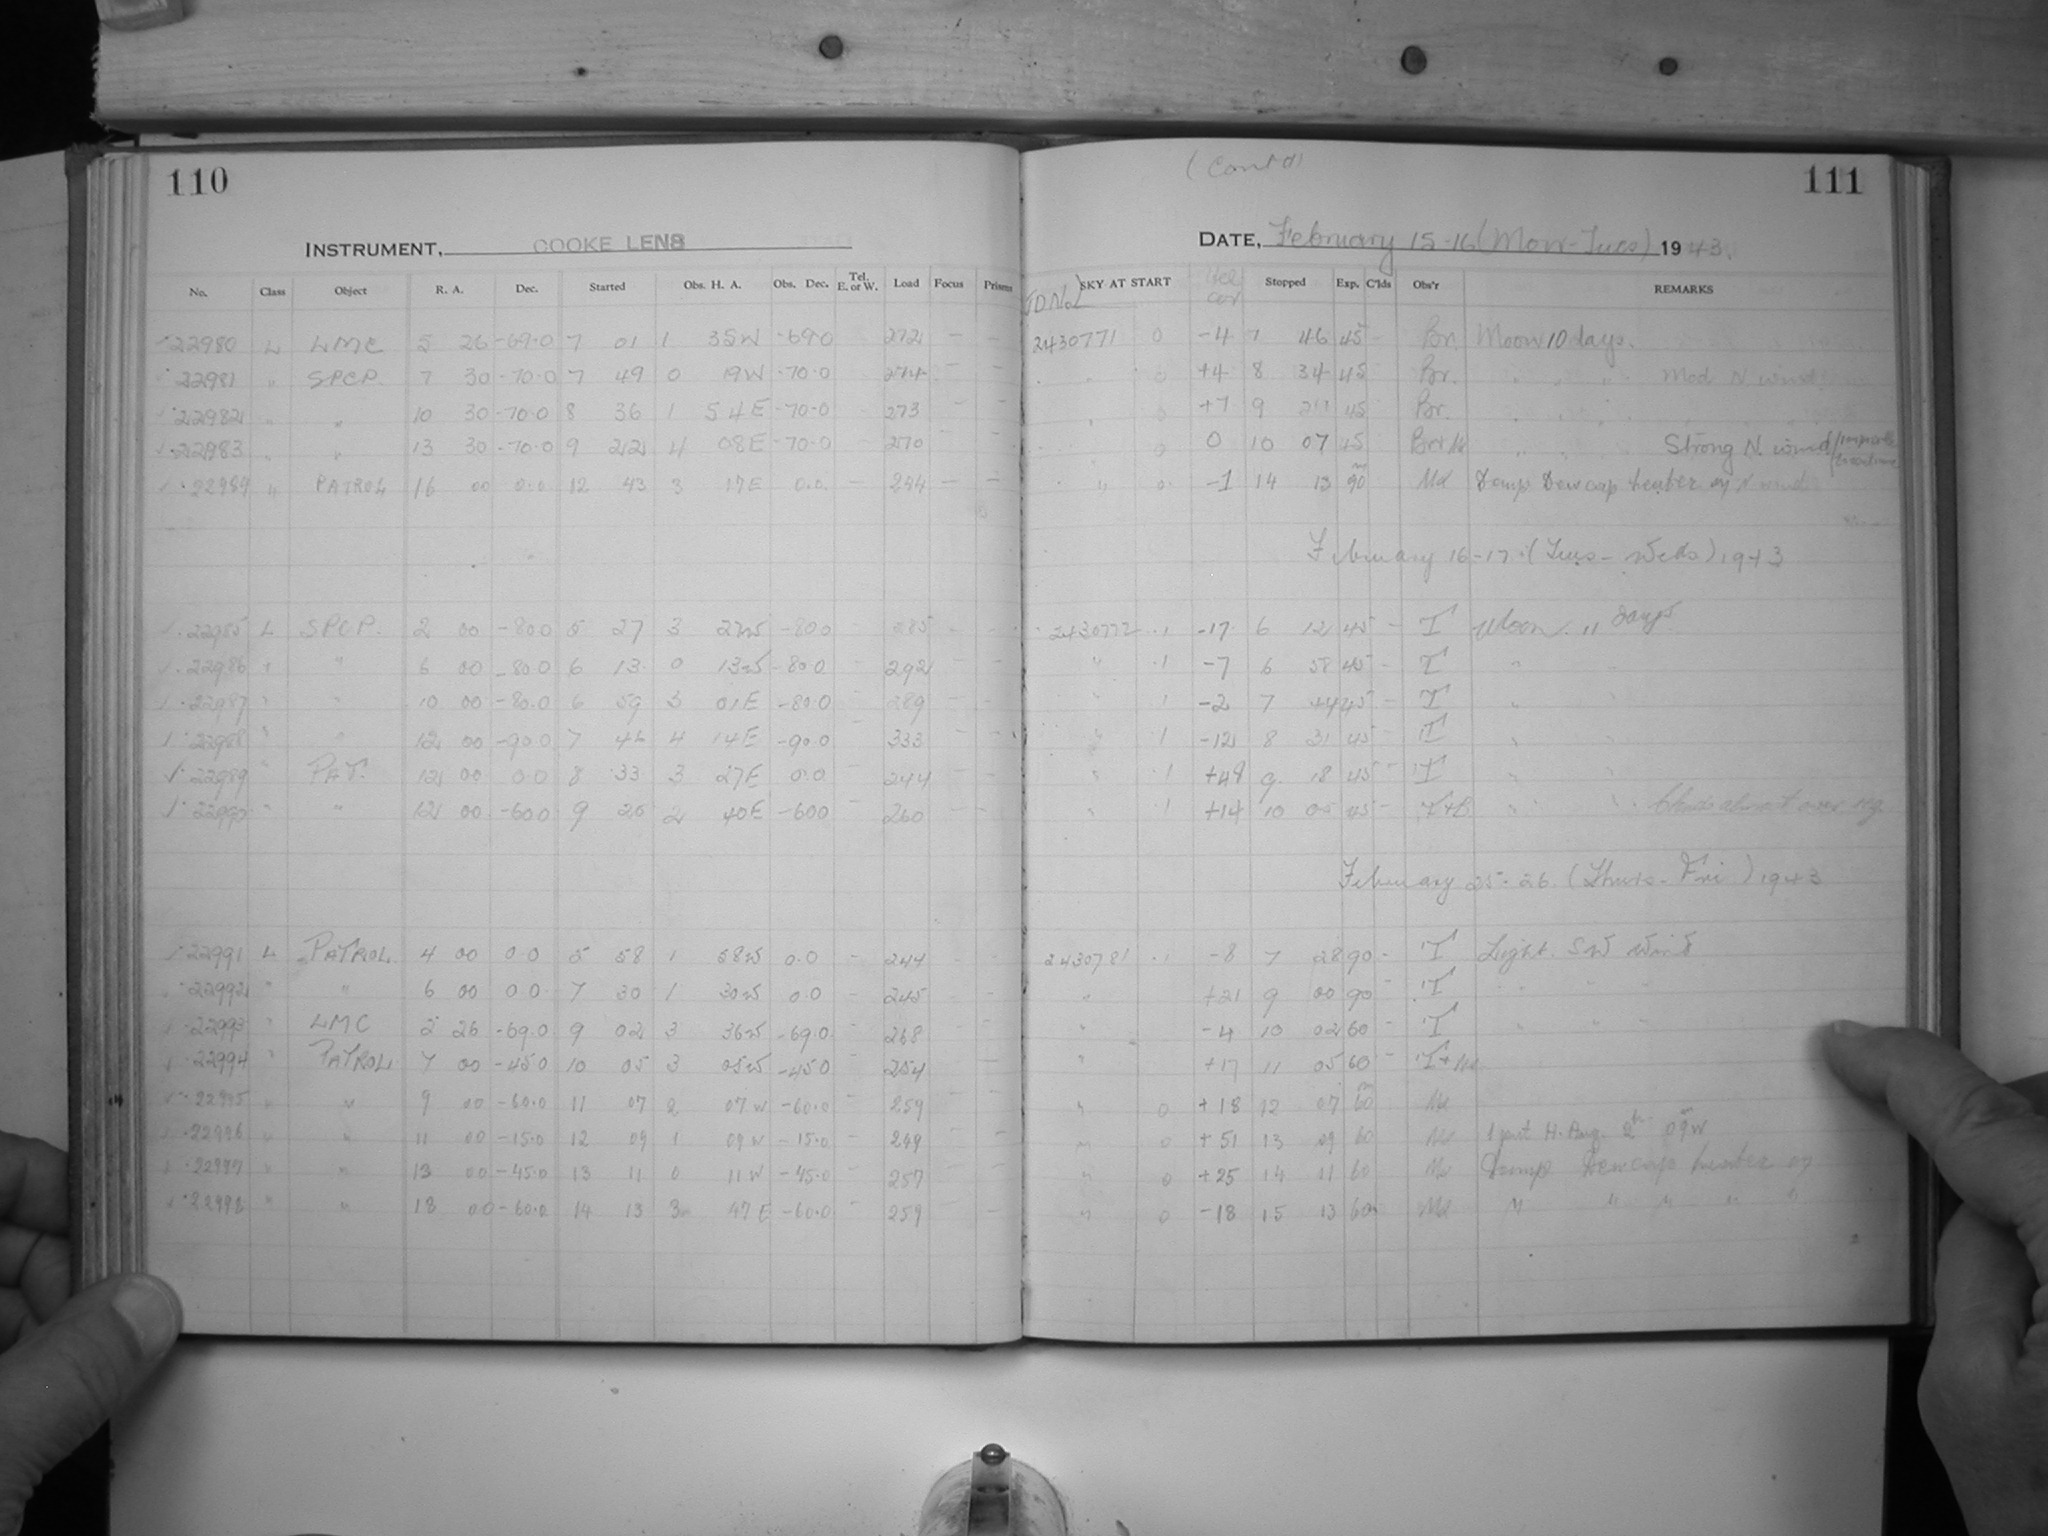 110
INSTRUMENT, COOKE LENS
No. Class Object R. A. Dec. Started Obs. H. A. Obs. Dec. Tel. E. or W. Load Focus Prisms
22980 L LMC 5 26 -69.0 7 01 1 35W -69.0 272 - -
22981 " SPCP. 7 30 -70.0 7 49 0 19W -70.0 - -
22982 " " 10 30 -70.0 8 36 1 54E -70.0 273 - -
22983 " " 13 30 -70.0 9 22 4 08E -70.0 270 - -
22984 " PATROL 16 00 0.0 12 43 3 17E 0.0 - 244 - -
22985 L SPCP. 2 00 -80.0 5 27 3 27W -80.0 - 285 - -
22986 " " 6 00 -80.0 6 13 0 13W -80.0 - 292 - -
22987 " " 10 00 -80.0 6 59 3 01E -80.0 - 289 - -
22988 " " 12 00 -90.0 7 46 4 14E -90.0 - 333 - -
22989 " PAT. 12 00 0.0 8 33 3 27E 0.0 - 244 - -
22990 " " 12 00 -60.0 9 20 2 40E -60.0 - 260 - -
22991 L PATROL 4 00 0.0 5 58 1 58W 0.0 - 244 - -
22992 " " 6 00 0.0 7 30 1 30W 0.0 - 245 - -
22993 " LMC 5 26 -69.0 9 02 3 36W -69.0 - 268 - -
22994 " PATROL 7 00 -45.0 10 05 3 05W -45.0 - 254 - -
22995 " " 9 00 -60.0 11 07 2 07W -60.0 - 259 - -
22996 " " 11 00 -15.0 12 09 1 09W -15.0 - 249 - -
22997 " " 13 00 -45.0 13 11 0 11W -45.0 - 257 - -
22998 " " 18 00 -60.0 14 13 3 47E -60.0 - 259 - -
(Contd)
111
DATE, February 15-16 (Mon-Tues) 1943.
JD No. SKY AT START Hel cor Stopped Exp. C'lds Obs'r REMARKS
2430771 0 -4 7 46 45 - Br. Moon 10 days.
" 0 +4 8 34 45 Br. " " " Mod N wind
" 0 +7 9 21 45 Br. " " "
" 0 0 10 07 45 " " " Strong N. wind
" 0 -1 14 13 90 Md Damp Dew cap heater on N wind
February 16-17 (Tues - Weds) 1943
2430772 .1 -17 6 12 45 - T Moon 11 days
" .1 -7 6 58 45 - T " "
" .1 -2 7 44 45 - T " "
" .1 -12 8 31 45 - T " "
" .1 +49 9 18 45 - T " "
" .1 +14 10 05 45 - T+B " " Clouds almost over
February 25-26. (Thurs - Fri) 1943
2430781 .1 -8 7 28 90 - T Light SW wind
" +21 9 00 90 - T " " "
" -4 10 02 60 - T " " "
" +17 11 05 60 - T+Md
" 0 +18 12 07 60 Md
" 0 +51 13 09 60 Md 1 part H. Ang. 2h 09m W
" 0 +25 14 11 60 Md Damp Dewcap heater on
" 0 -18 15 13 60 Md " " " " "